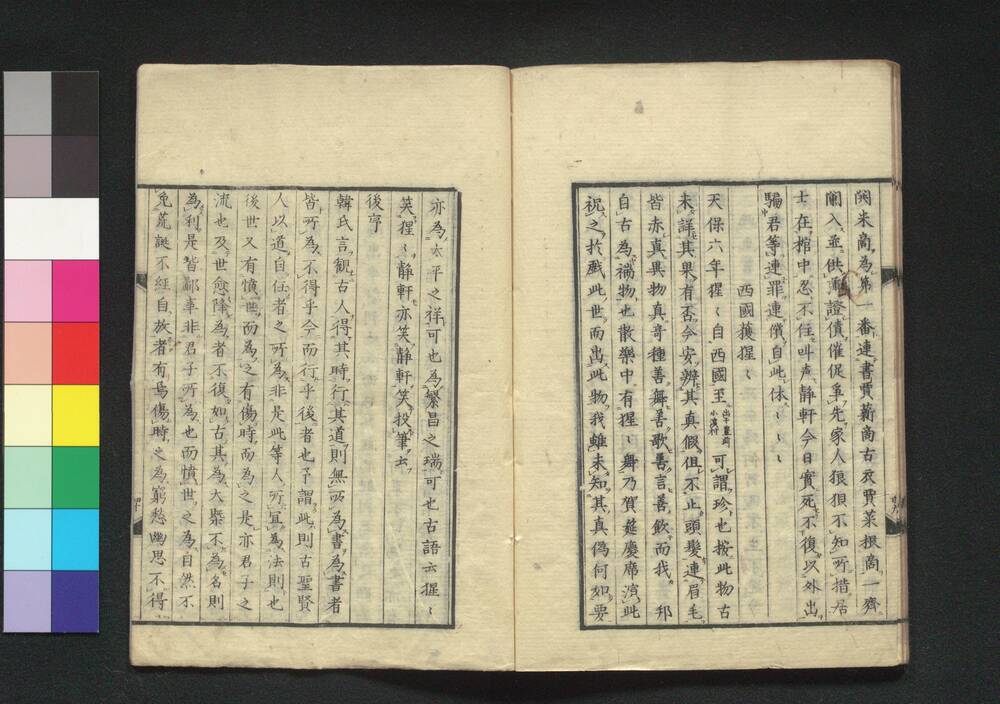 闕米商為第一番連書賈薪商古衣賈菜根商一齊
闌入並供證債催促爭先家人狼狽不知所措居
士在棺中忍不住叫声静軒今日實死不復以外出
騙君等連罪連償自此休〻〻〻
西國獲猩〻
天保六年猩〻自西國至出于豊前小濱村可謂珍也按此物古
来詳其果有否今安辨其真假但不止頭髮連眉毛
皆赤真異物真奇種善舞善歌善言善飲而我邦
自古為禍物也散樂中有猩〻舞乃賀莚慶席演此
祝之於戲此世而出此物我雖未知其真偽何如要
亦為太平之祥可也為繁昌之瑞可也古語云猩〻
笑猩〻静軒亦笑静軒笑投筆云
後序
韓氏言觀古人得其時行其道則無所為書為書者
皆所為不得乎今而行乎後者也予謂此則古聖賢
人以道自任者之所為非是此等人所宜為法則也
後世又有憤世而為之有傷時而為之是亦君子之
流也及世愈降為者不復如古其為大槩不為名則
為利是皆鄙事非君子所為也而憤世之為自然不
免荒誕不經自放者有焉傷時之為窮愁幽思不得